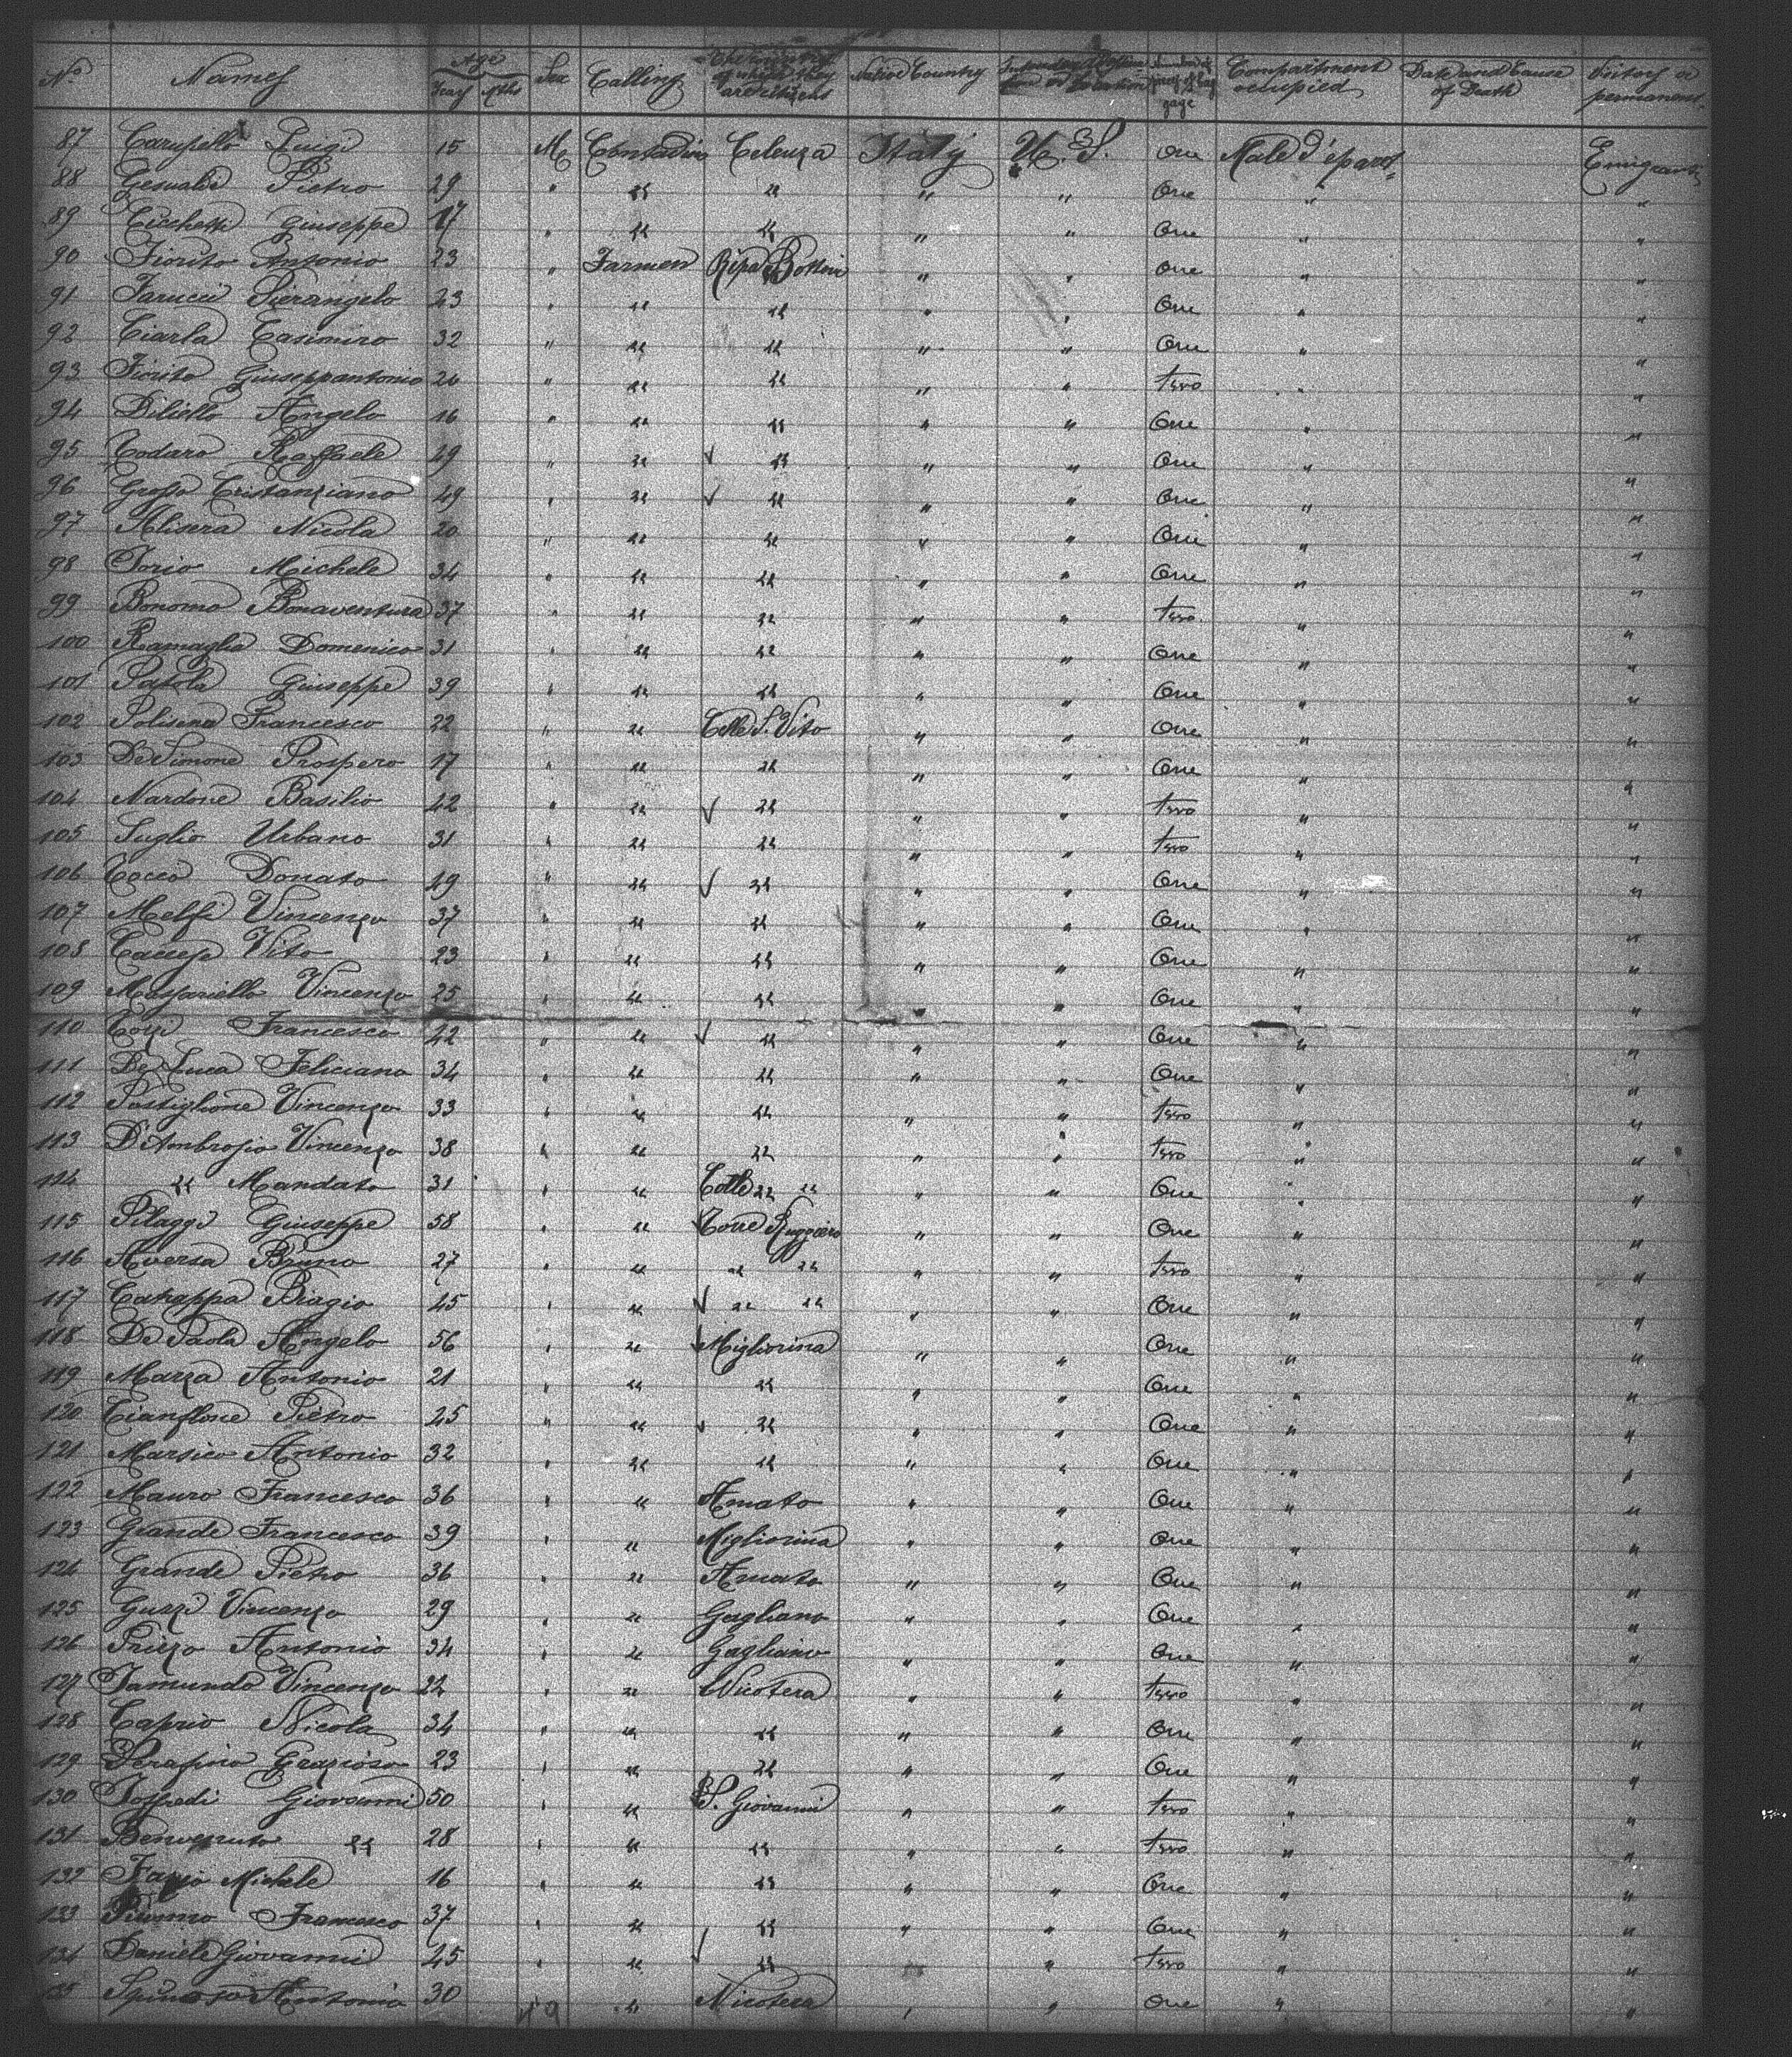 No Names Age Years Mths Sex Calling The Country of which they are citizens Native Country Intended Destination or Location Number of pieces of baggage Compartment occupied Date and Cause of Death Transitory or permanent
87 Carusello Luigi 15 M Contadino Celenza Italy U. S. One Male Depart. Emigrants
88 Gesualdi Pietro 29 " " " " " One " "
89 Cicchetti Giuseppe 17 " " " " " One " "
90 Fiorito Antonio 23 " Farmer Ripa Bottoni " " One " "
91 Farucci Pierangelo 23 " " " " " One " "
92 Ciarla Casimiro 32 " " " " " One " "
93 Fiorito Giuseppantonio 26 " " " " " Two " "
94 Diliello Angelo 16 " " " " " One " "
95 Todaro Raffaele 29 " " " " " One " "
96 Grosso Cristanziano 49 " " " " " One " "
97 Alisera Nicola 20 " " " " " One " "
98 Iorio Michele 34 " " " " " One " "
99 Bonomo Bonaventura 37 " " " " " Two " "
100 Ramaglia Domenico 31 " " " " " One " "
101 Paola Giuseppe 39 " " " " " One " "
102 Polisena Francesco 22 " " Celle S. Vito " " One " "
103 De Simone Prospero 17 " " " " " One " "
104 Nardone Basilio 42 " " " " " Two " "
105 Suglio Urbano 31 " " " " " Two " "
106 Cocco Donato 49 " " " " " One " "
107 Melfi Vincenzo 37 " " " " " One " "
108 Caccese Vito 23 " " " " " One " "
109 Massariello Vincenzo 25 " " " " " One " "
110 Cozzi Francesco 42 " " " " " One " "
111 De Luca Feliciano 34 " " " " " One " "
112 Postiglione Vincenzo 33 " " " " " Two " "
113 D'Ambrosio Vincenzo 38 " " " " " Two " "
124 " Mandato 31 " " Celle " " " " One " "
115 Pilaggi Giuseppe 58 " " Torre Ruggiero " " One " "
116 Aversa Bruno 27 " " " " " " Two " "
117 Catrappa Biagio 45 " " " " " " One " "
118 De Paola Angelo 56 " " Migliorina " " One " "
119 Mazza Antonio 21 " " " " " One " "
120 Cianflone Pietro 25 " " " " " One " "
121 Marsico Antonio 32 " " " " " One " "
122 Mauro Francesco 36 " " Amato " " One " "
123 Grande Francesco 39 " " Migliorina " " One " "
124 Grande Pietro 36 " " Amato " " One " "
125 Guzzi Vincenzo 29 " " Gagliano " " One " "
126 Priezo Antonio 34 " " Gagliano " " One " "
127 Iamundo Vincenzo 22 " " Nicotera " " Two " "
128 Caprio Nicola 34 " " " " " One " "
129 Serafino Grazioso 23 " " " " " One " "
130 Joffredi Giovanni 50 " " S. Giovanni " " Two " "
131 Benvenuto " 28 " " " " " Two " "
132 Fazio Michele 16 " " " " " One " "
133 Piunno Francesco 37 " " " " " One " "
134 Daniele Giovanni 45 " " " " " Two " "
135 Spinoso Antonio 30 " Nicotera " " One " "